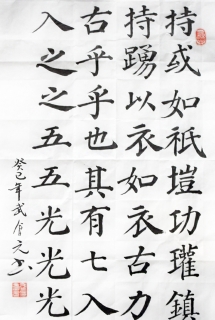 持或如祇塏功瓘鎮
持踴以衣如衣古力
古乎乎也其有七入
入之之五五光光光
癸巳年武元书